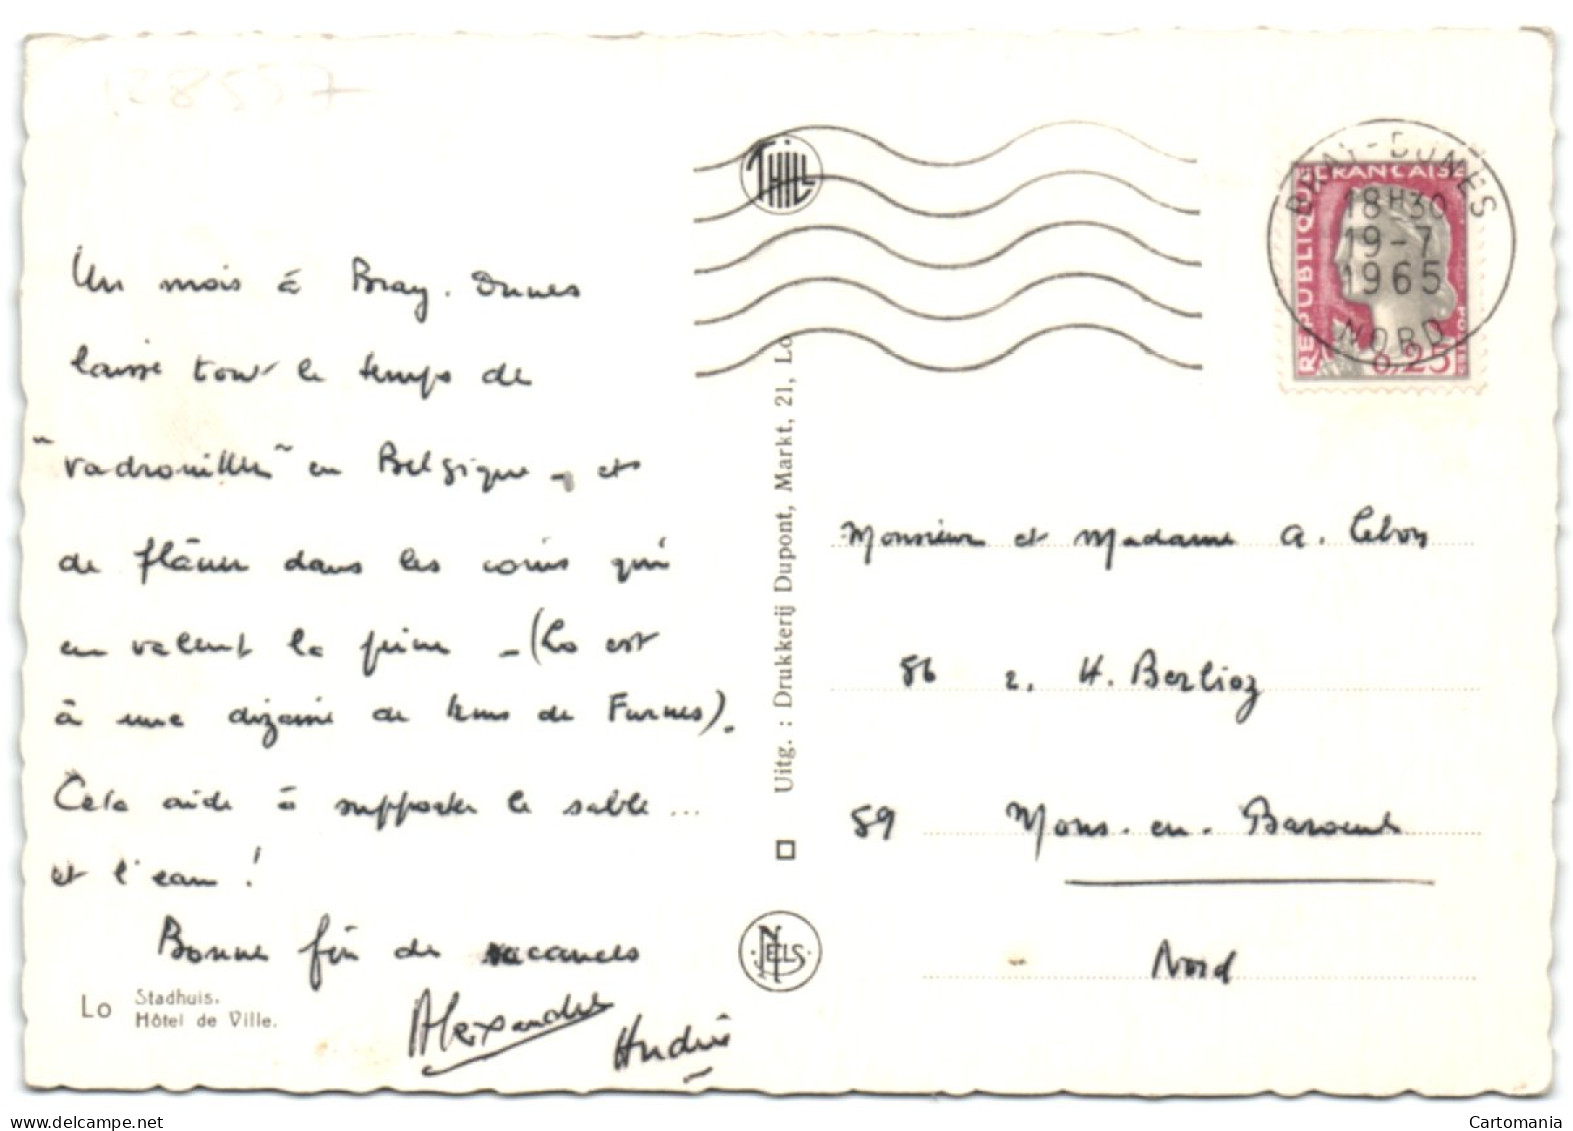 128557
THILL
BRAY-DUNES
18H30
19-7
1965
NORD
REPUBLIQUE FRANÇAISE
POSTES
0,25
Un mois à Bray-Dunes
laisse tout le temps de
"vadrouiller" en Belgique - et
de flâner dans les coins qui
en valent la peine - (Lo est
à une dizaine de kms de Furnes).
Cela aide à supporter le sable...
et l'eau !
Bonne fin de vacances
Alexandre
Andrée
Lo
Stadhuis.
Hôtel de Ville.
Uitg. : Drukkerij Dupont, Markt, 21, Lo
NELS
Monsieur et Madame A. Lebon
86 r. H. Berlioz
59 Mons-en-Baroeul
Nord
Cartomania